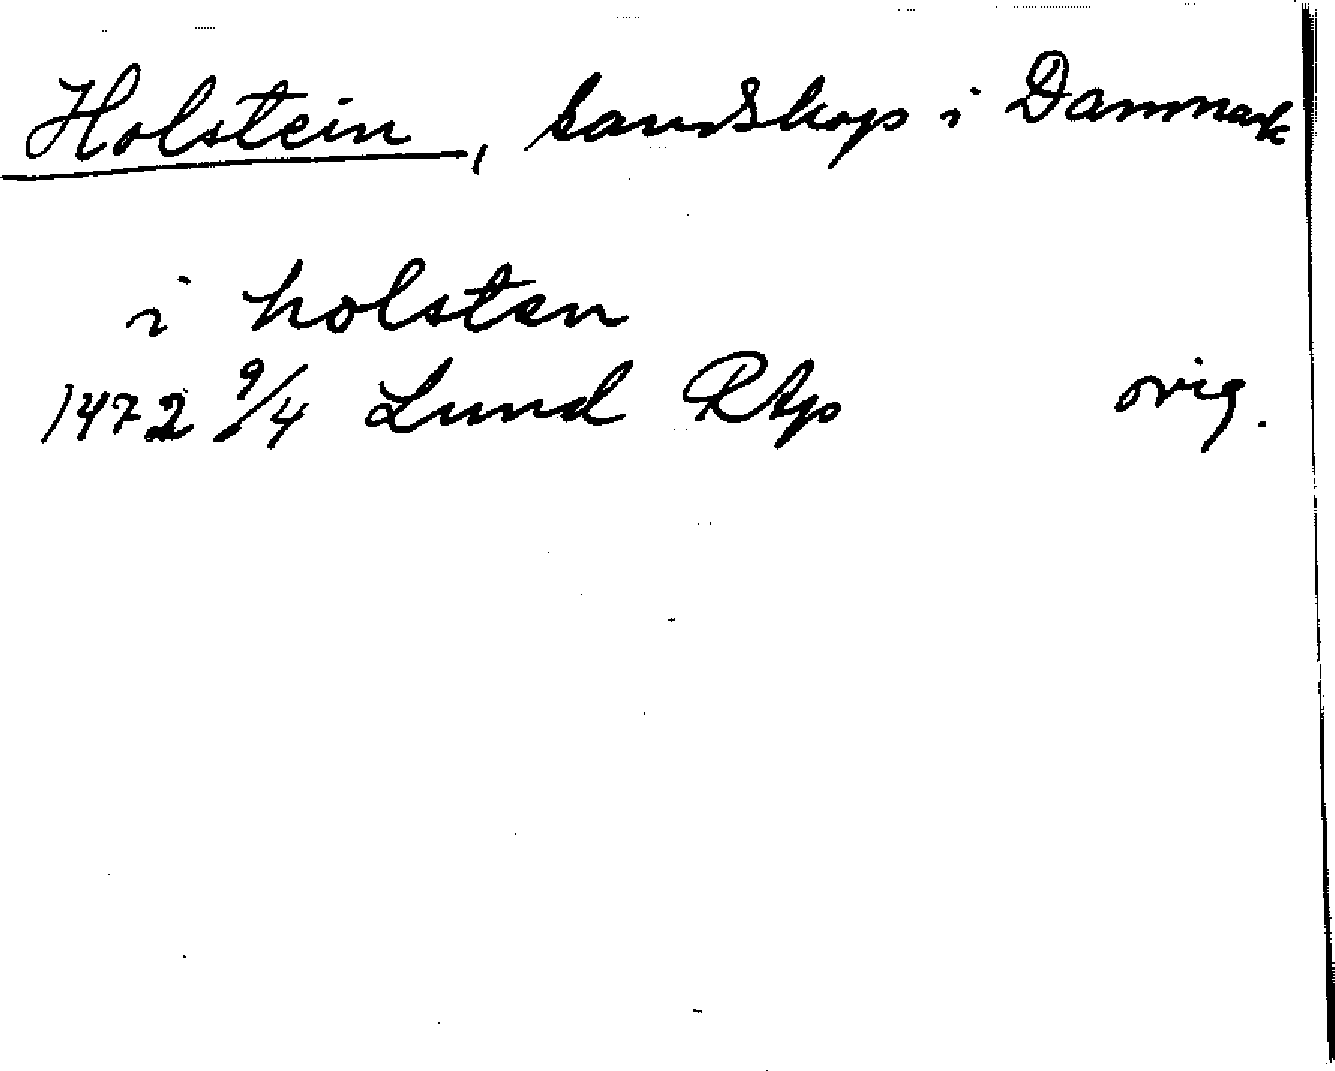 Holstein, landskap i Danmark
i holsten
1472 9/4 Lund Rtp orig.